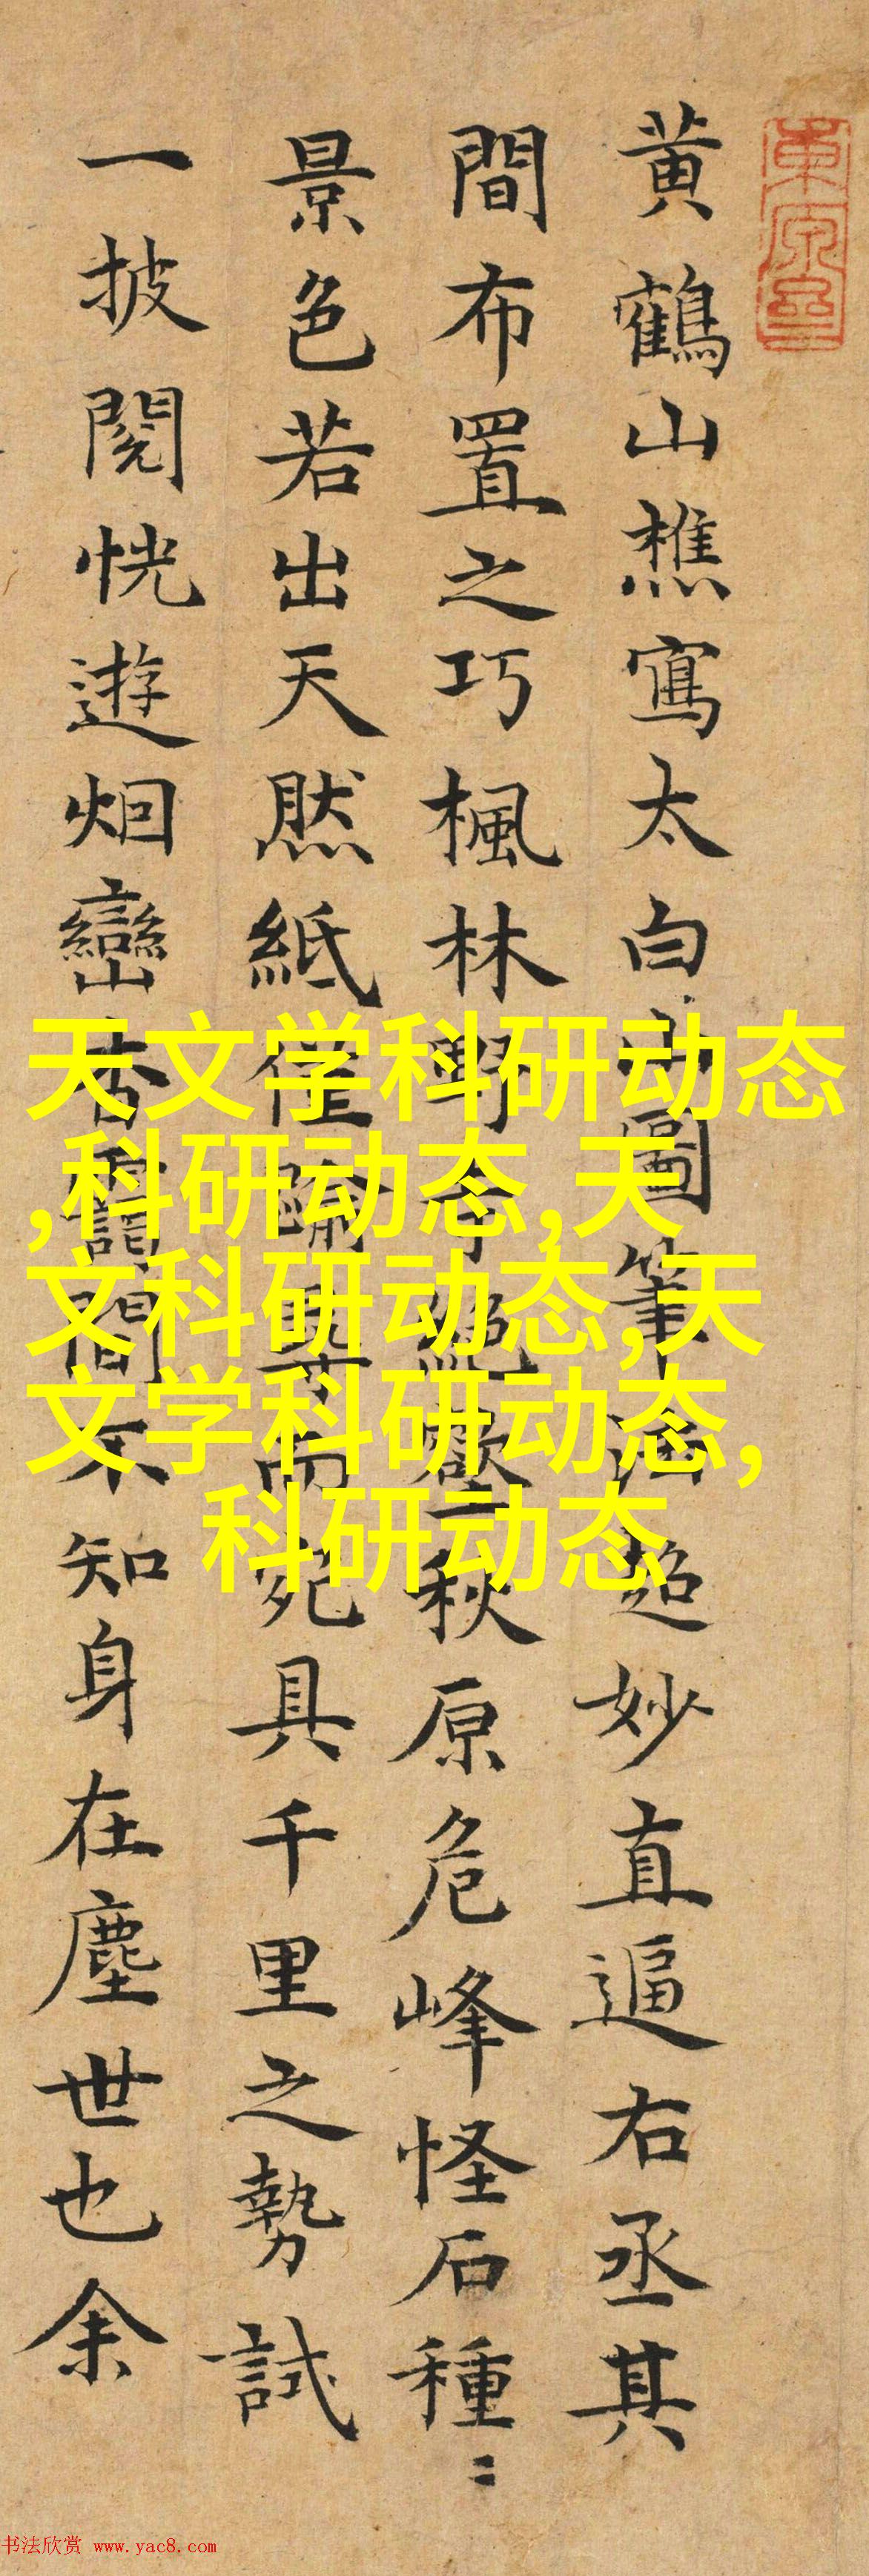 黄鶴山樵寫太白山圖筆法超妙直逼右丞其
間布置之巧楓林野寺絕壑秋原危峰怪石種〻
景色若出天然紙僅踰尋而宛具千里之勢試
一披閱恍遊烟巒杳靄間不知身在塵世也余
天文学科研动态
,科研动态,天
文科研动态,天
文学科研动态,
科研动态
书法欣赏 www.yac8.com